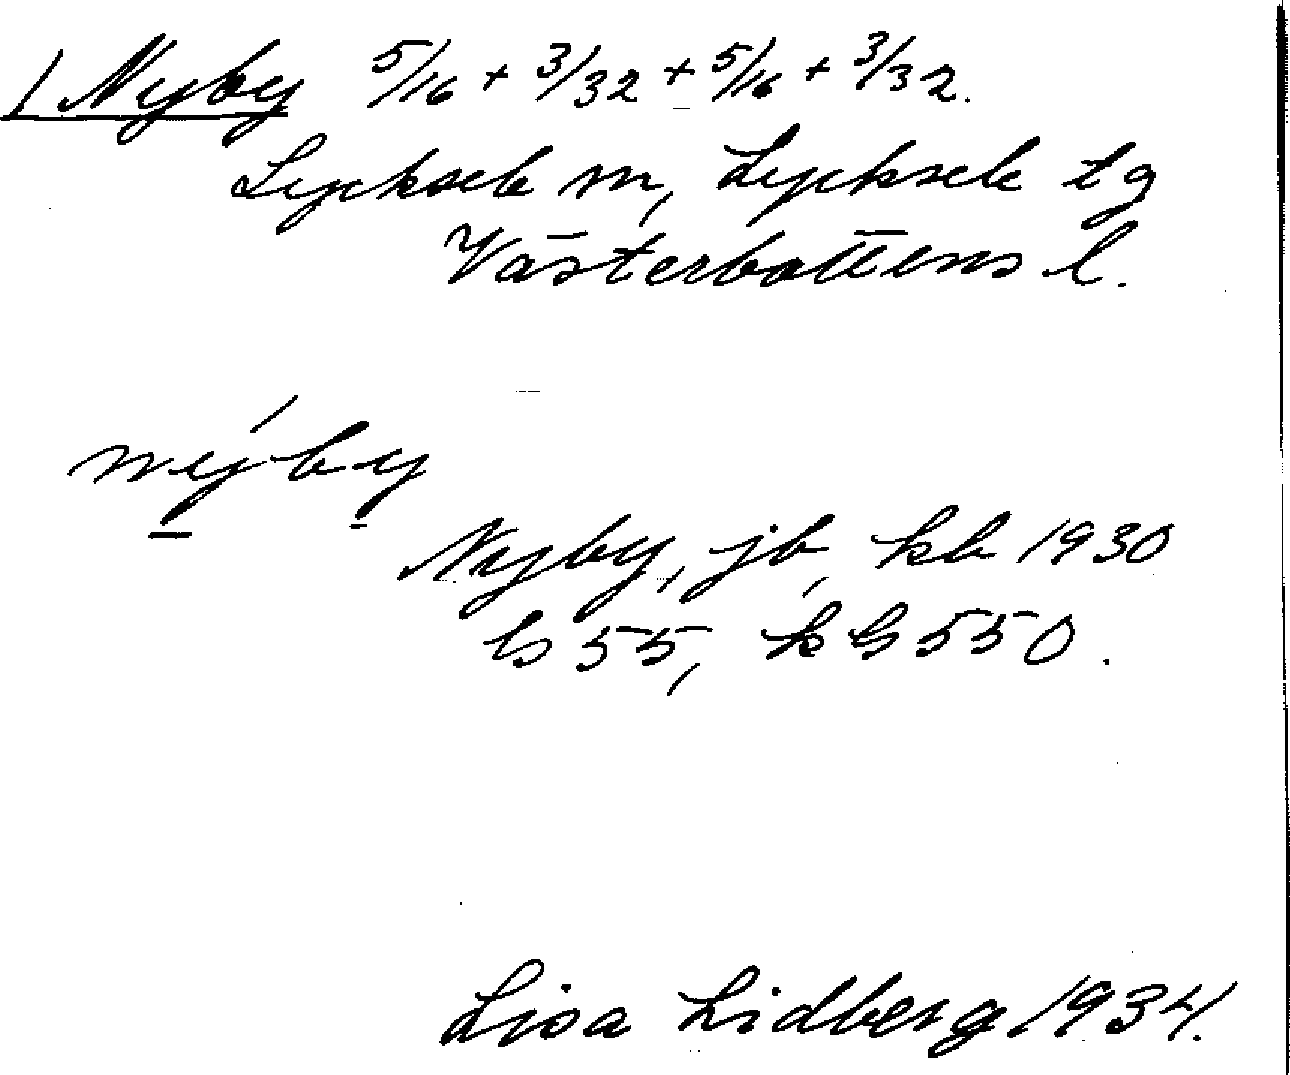 / Nyby 5/16 + 3/32 + 5/16 + 3/32.
Lycksele m, Lycksele tg
Västerbottens l.
nýby
Nyby, jb, kb 1930
ls 55, k ls 550.
Lisa Lidberg 1934.